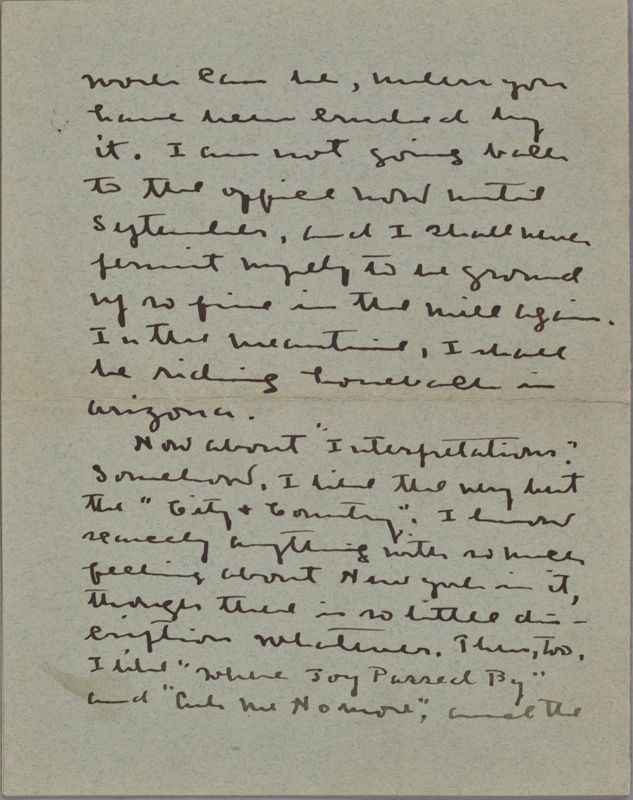 work can be, unless you
have been crushed by
it. I am not going back
to the office now until
September, and I shall never
permit myself to be ground
up so fine in the mill again.
In the meantime, I shall
be riding horseback in
Arizona.
Now about "Interpretations".
Somehow, I like the very best
the "City & Country". I know
scarcely anything with so much
feeling about New York in it,
though there is so little dis-
cription whatever. Then, too,
I like "Where Joy Passed By"
and "Ask Me No More", and the